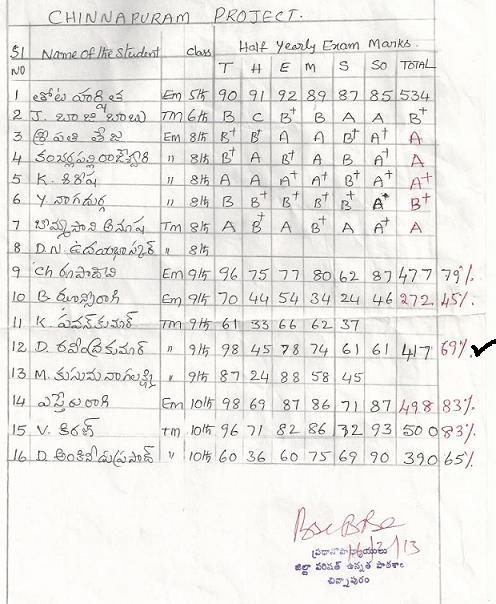 CHINNAPURAM PROJECT.
Sl NO Name of the Student class Half Yearly Exam Marks.
T H E M S So TOTAL
1 తోట హర్షిత Em 5th 90 91 92 89 87 85 534
2 J. బాజి బాబు TM 6th B C B+ B A A B+
3 శ్రీపతి తేజ Em 8th B+ B+ A A B+ A+ A
4 " 8th B+ A B+ A B A+ A
5 K. శిరీష " 8th A A A A+ B+ A+ A+
6 Y నాగదుర్గ " 8th B B+ B+ B+ B+ A+ B+
7 Tm 8th A B+ A B+ A A+ A
8 D.N. ఉదయభాస్కర్ " 8th
9 Ch రూపాదేవి Em 9th 96 75 77 80 62 87 477 79%
10 B. ఝాన్సీరాణి Em 9th 70 44 54 34 24 46 272 45%
11 K. పవన్ కుమార్ TM 9th 61 33 66 62 37
12 D. రవీంద్రకుమార్ " 9th 98 45 78 74 61 61 417 69% ✓
13 M. కుసుమ నాగలక్ష్మి " 9th 87 24 88 58 45
14 ఎస్తేరు రాణి Em 10th 98 69 87 86 71 87 498 83%
15 V. కిరణ్ Tm 10th 96 71 82 86 72 93 500 83%
16 D. అంకినీడుప్రసాద్ " 10th 60 36 60 75 69 90 390 65%
ప్రధానోపాధ్యాయులు
జిల్లా పరిషత్ ఉన్నత పాఠశాల
చిన్నాపురం